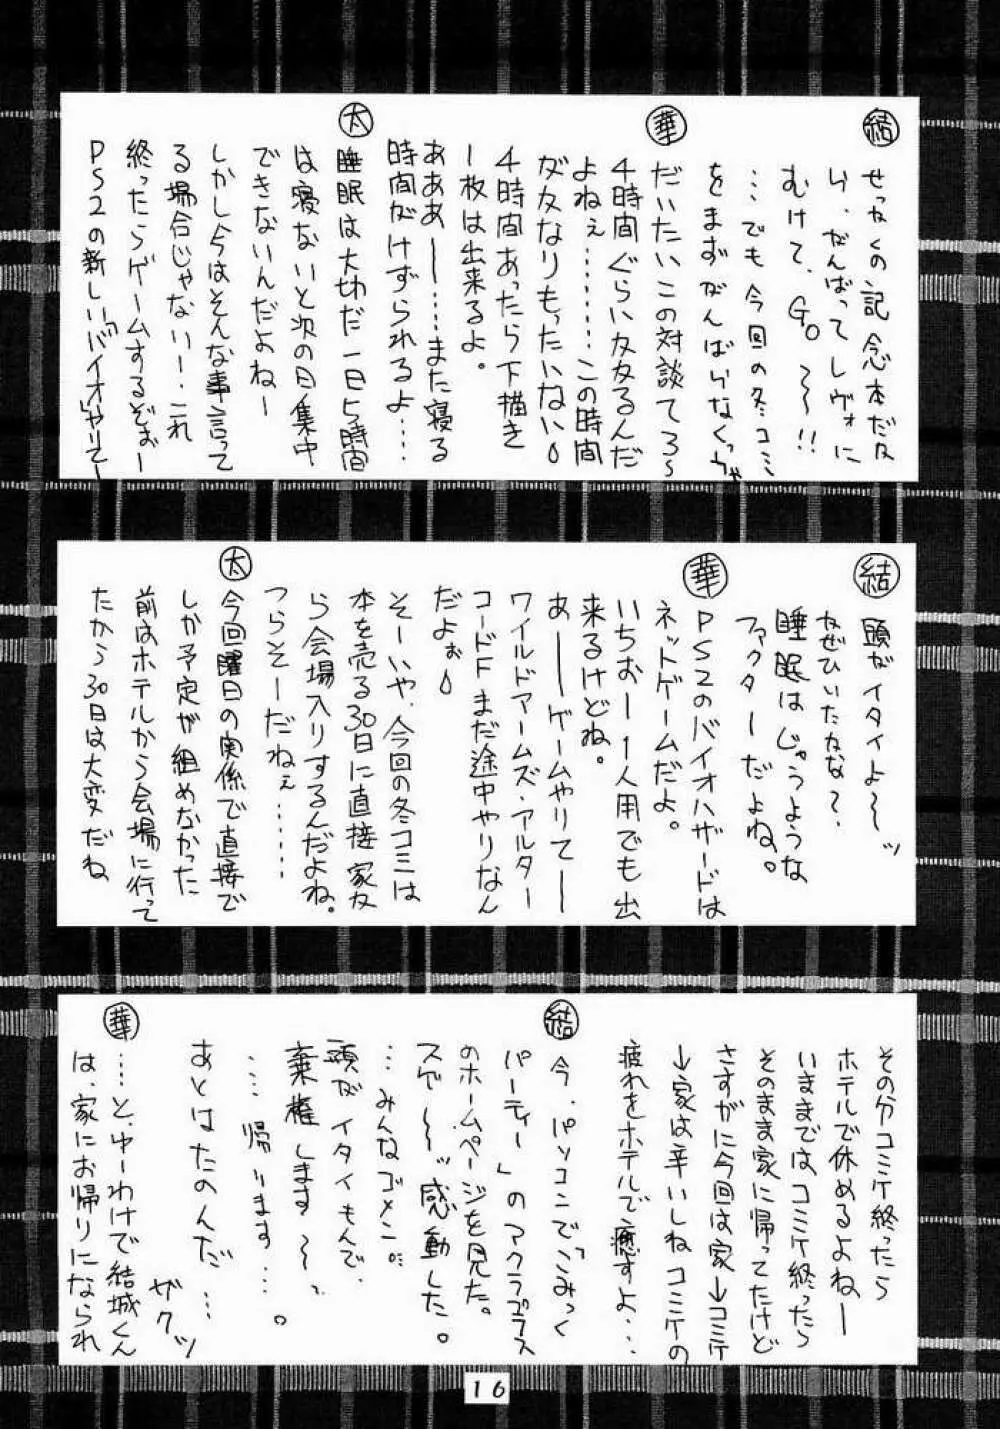 結
せっかくの記念本だな
い、がんばってレヴォに
むけて、GO〜〜!!
…でも今回の冬コミ
をまずがんばらなくっちゃ
華
だいたいこの対談てろ〜
4時間ぐらい友るんだ
よねぇ………この時間
が友なりもったいない
4時間あったら下描き
一枚は出来るよ。
あああー……また寝る
時間がけずられるよ……
太
睡眠は大切だ一日5時間
は寝ないと次の日集中
できないんだよねー
しかし今はそんな事言って
る場合じゃないー・これ
終ったらゲームするぞぉー
PS2の新しい「バイオ」やりてー
結
頭がイタイよ〜〜ッ
なぜひいたなな?、
睡眠はじゅうような
ファクターだよね。
華
PS2のバイオハザードは
ネットゲームだよ。
いちおー1人用でも出
来るけどね。
あー──ゲームやりてー
ワイルドアームズ・アルター
コードFまだ途中やりなん
だよぉ
そーいや、今回の冬コミは
本を売る30日に直接家友
ら会場入りするんだよね。
つらそーだねぇ……
太
今回曜日の関係で直接で
しか予定が組めなかった
前はホテルから会場に行って
たから30日は大変だね
その分コミケ終ったら
ホテルで休めるよねー
いままではコミケ終ったら
そのまま家に帰ってたけど
さすがに今回は家→コミケ
→家は辛いしねコミケの
疲れをホテルで癒すよ…
結
今、パソコンで「こみっく
パーティー」のアクアプラス
のホームページを見た。
スゲ〜〜ッ感動した。
…みんなゴメン。
頭がイタイもんで、
棄権します〜っ
…帰ります…。
あとはたのんだ…
ザクッ
華
……と、ゆーわけで結城くん
は、家にお帰りになられ
16